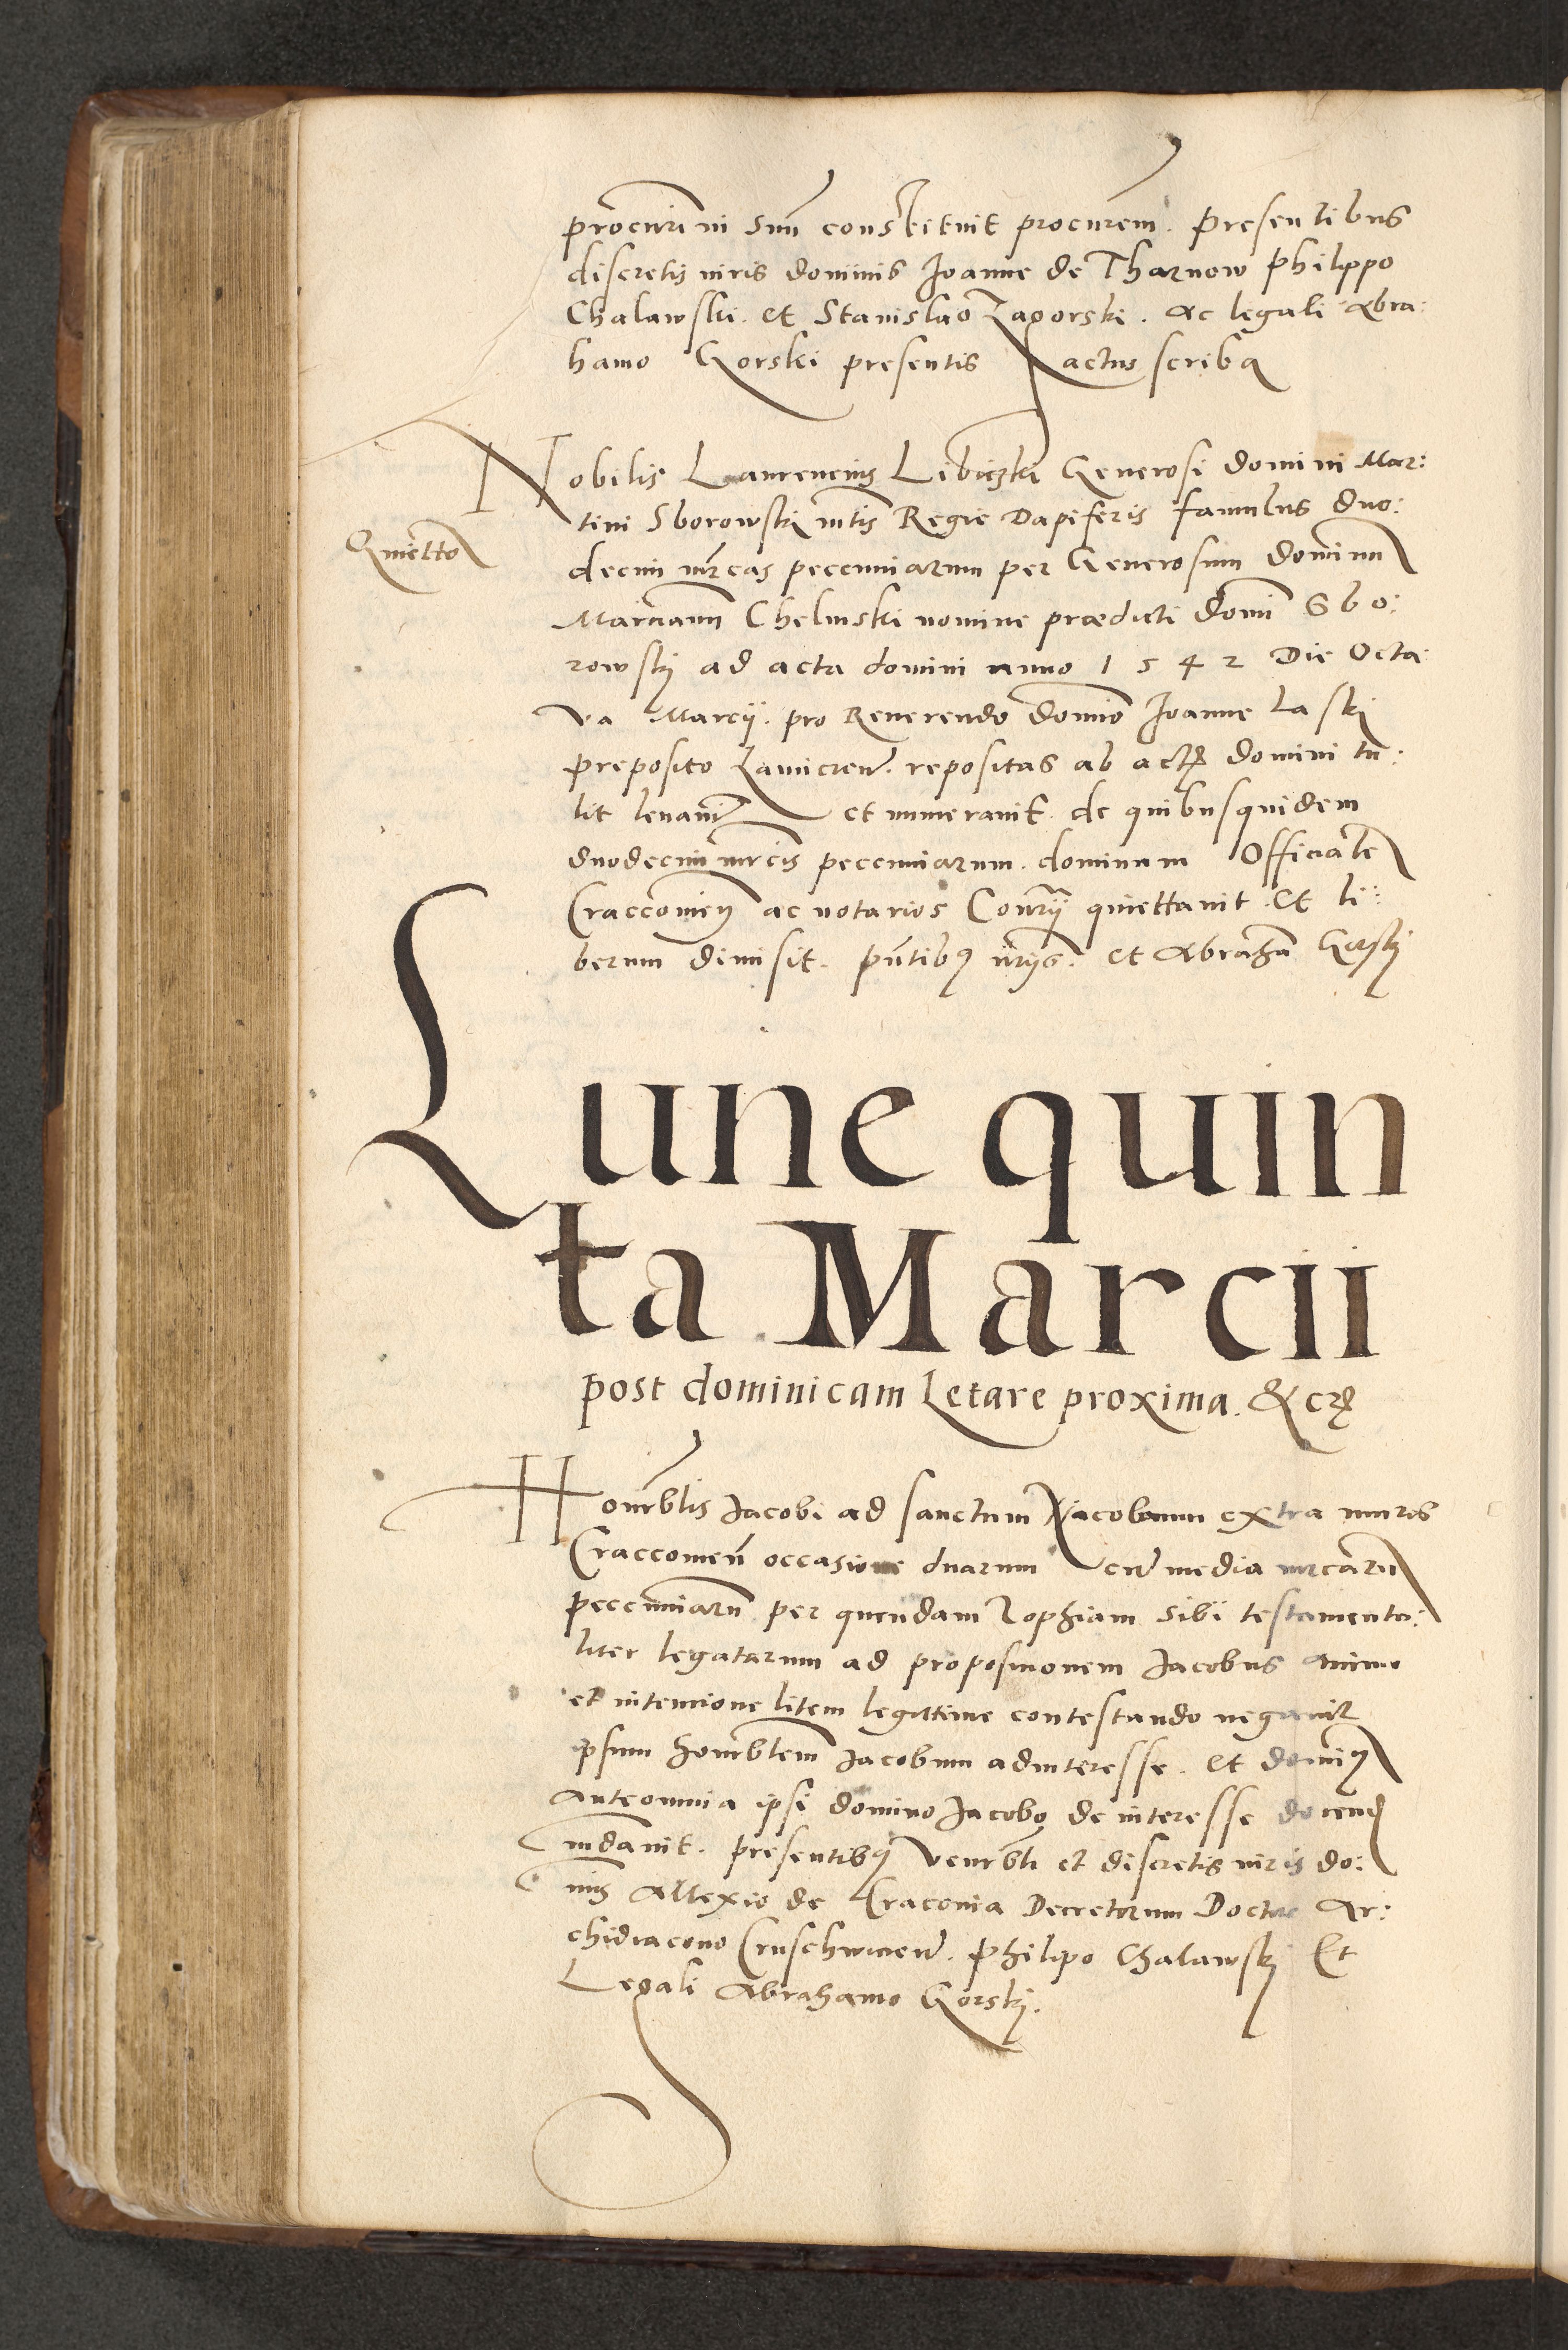 procurni suu constituit procurem. presentibus
discretis viris dominis Joanne de Tharnow philippo
Chalawski. et Stanislao Zaporski. ac legali Abra:
hamo Gorski presentis actus scriba
Nobilis Laurencius Libiczki Generosi domini Mar:
tini Sborowski mtis Regie Dapiferis famulus duo:
Quietto
decim mrcas peccuniarum per Generosum dominu
Marcianu Chelmski nomine prædicti domi Sbo:
rowskj ad acta domini anno 1542 Die Octa
va Marcij. pro Reverendo domio Joanne Laskj
preposito repositas ab actis domini tu:
lit levavit et numeravit. de quibusquidem
duodecim mrcis peccuniarum. dominum Officiale
Craccovien ac notarios quiettavit. Et li:
berum dimisit. pntibus et Abraha Gorskj
Lune quin
ta Marcii
post dominicam Letare proxima.
Honrblis Jacobi ad sanctum Jacobum extra muros
Craccovien occasione duarum cum media mrcaru
peccuniaru per quendam Zophiam sibi testamenta:
liter legatarum ad proposicionem Jacobus animo
et intencione litem legittime contestando negavit
ipsum honrblem Jacobum adinteresse. et dominus
anteomnia ipsi domino Jacobo de interesse docend
mdavit. presentibus venrbli et discretis viris do:
mis Allexio de Craconia Decretorum Doctore Ar:
chidiacono Cruschwicen. philipo Chalawskj Et
Legali Abrahamo Gorskj.